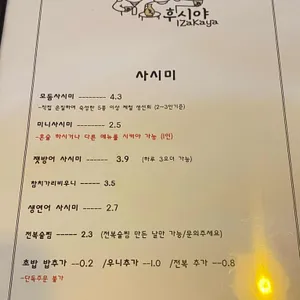 후시야
IZakaya
사시미
모듬사시미 -------- 4.3
-직접 손질하여 숙성한 5종 이상 제철 생선회 (2~3인기준)
미니사시미 ------- 2.5
-혼술 하시거나 다른 메뉴를 시켜야 가능 (1인)
잿방어 사시미 ----- 3.9 (하루 3모더 가능)
참치가리비우니 ----- 3.5
생연어 사시미 ----- 2.7
전복술찜 ----- 2.3 (전복술찜 만든 날만 가능/문의주세요)
초밥 밥추가 --0.2 /우니추가 --1.0 /전복 추가 --0.8
-단독주문 불가